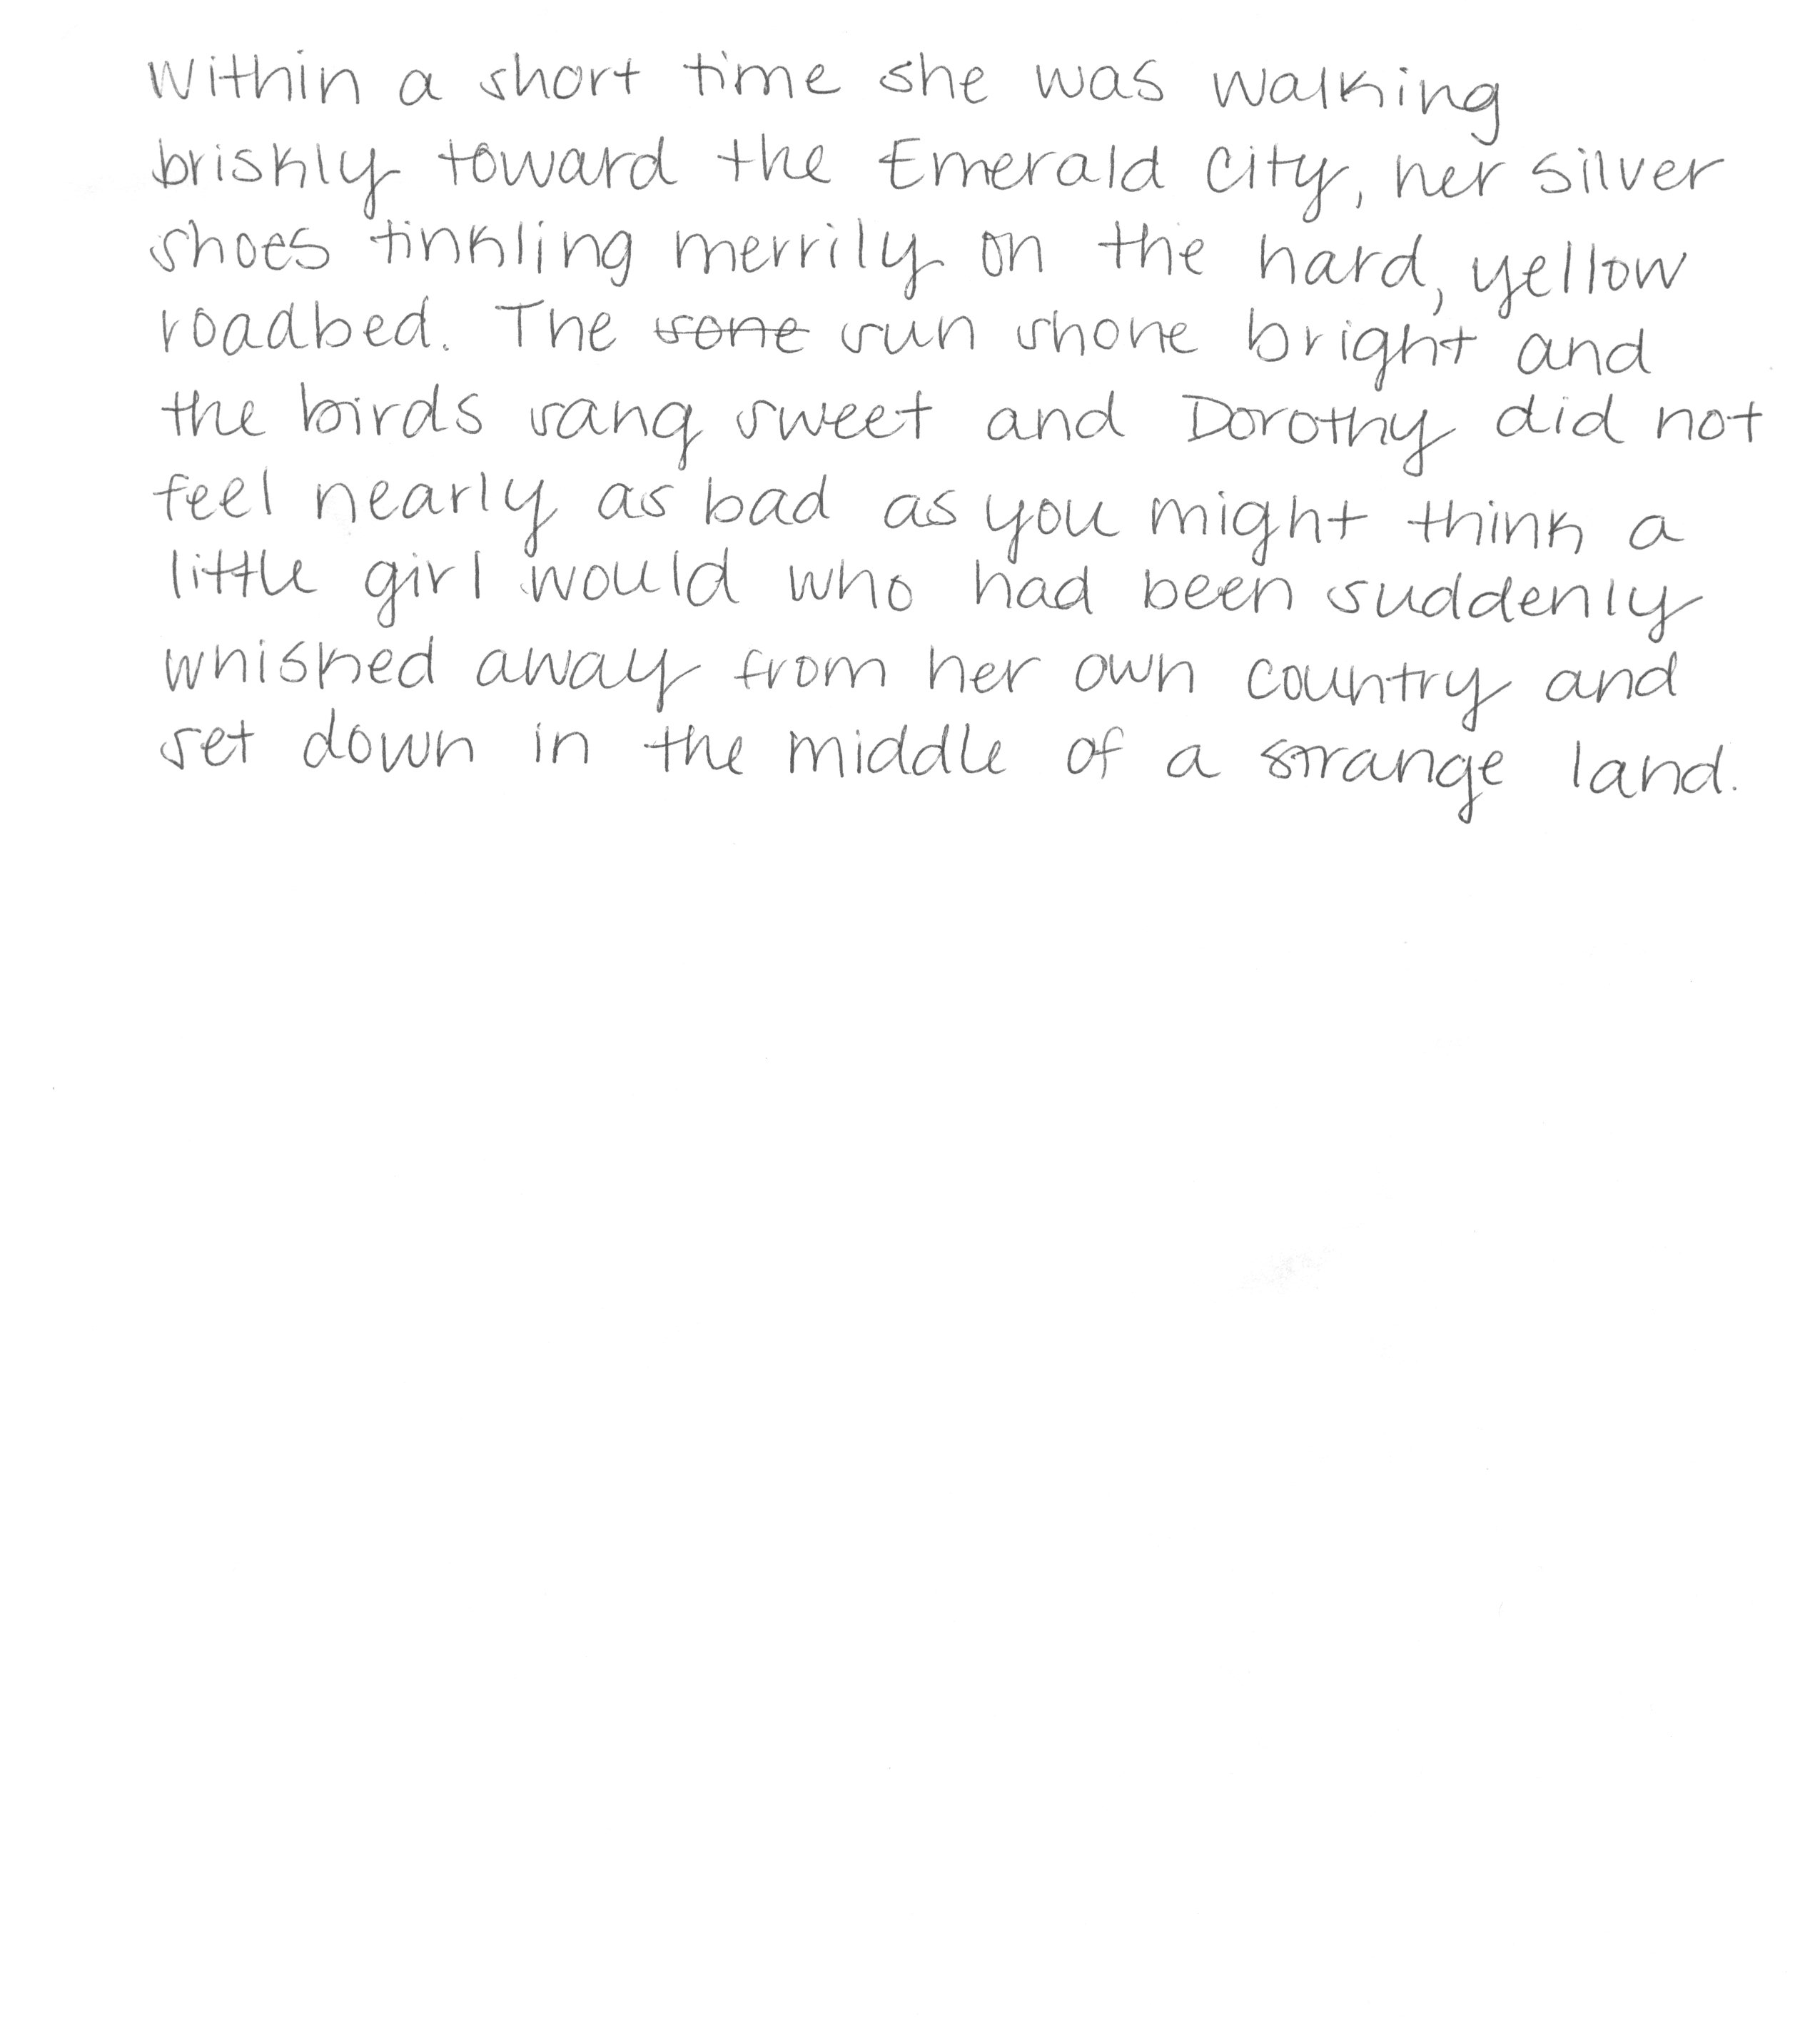 Within a short time she was walking
briskly toward the Emerald City, her silver
shoes tinkling merrily on the hard, yellow
roadbed. The sone sun shone bright and
the birds sang sweet and Dorothy did not
feel nearly as bad as you might think a
little girl would who had been suddenly
whisked away from her own country and
set down in the middle of a strange land.